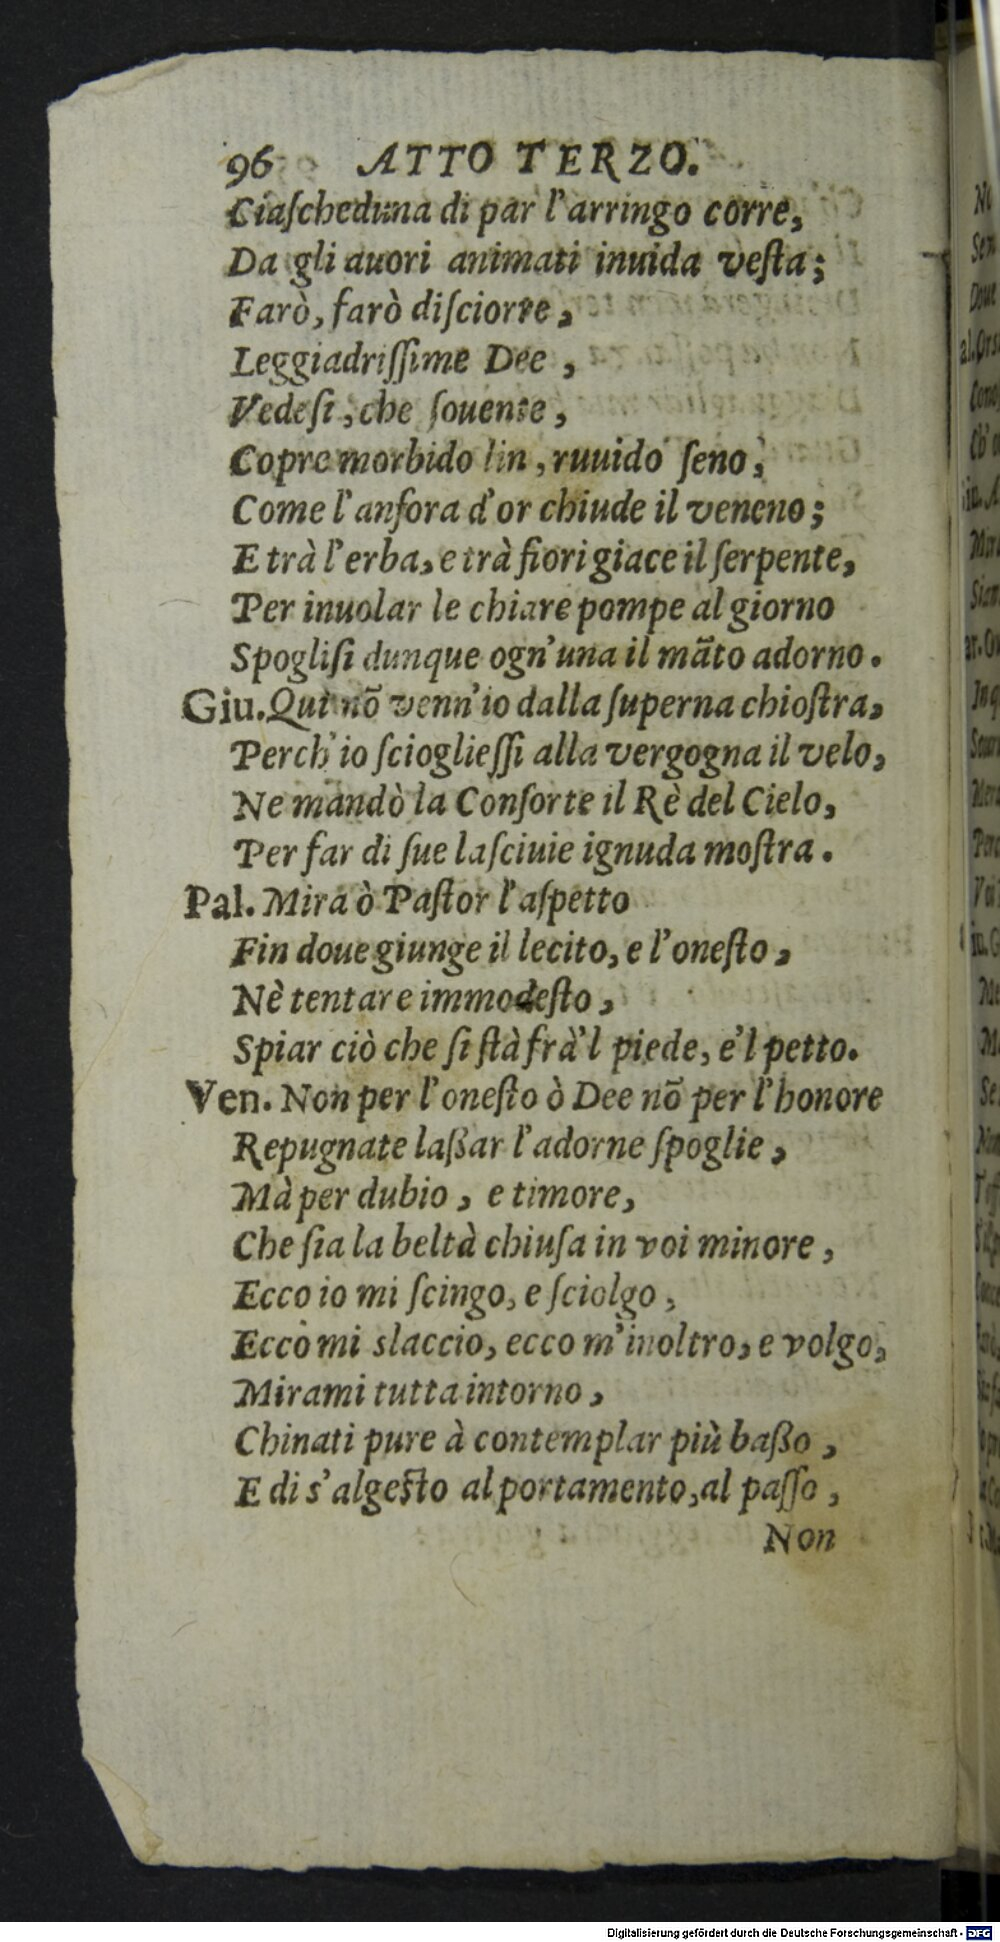 96 ATTO TERZO.
Ciaſcheduna di par l'arringo corre,
Da gli auori animati inuida veſta;
Farò, farò diſciorre,
Leggiadriſſime Dee,
Vedeſi, che ſouente,
Copre morbido lin, ruuido ſeno,
Come l'anfora d'or chiude il veneno;
E trà l'erba, e trà fiori giace il ſerpente,
Per inuolar le chiare pompe al giorno
Spogliſi dunque ogn'una il mãto adorno.
Giu. Qui nõ venn'io dalla ſuperna chioſtra,
Perch'io ſciоglieſſi alla vergogna il velo,
Ne mandò la Conſorte il Rè del Cielo,
Per far di ſue laſciuie ignuda moſtra.
Pal. Mira ò Paſtor l'aſpetto
Fin doue giunge il lecito, e l'oneſto,
Nè tentare immodeſto,
Spiar ciò che ſi ſtà frà'l piede, e'l petto.
Ven. Non per l'oneſto ò Dee nõ per l'honore
Repugnate laßar l'adorne ſpoglie,
Mà per dubio, e timore,
Che ſia la beltà chiuſa in voi minore,
Ecco io mi ſcingo, e ſciolgo,
Ecco mi slaccio, ecco m'inoltro, e volgo,
Mirami tutta intorno,
Chinati pure à contemplar più baßo,
E di s'al geſto al portamento, al paſſo,
Non
Digitalisierung gefördert durch die Deutsche Forschungsgemeinschaft - DFG